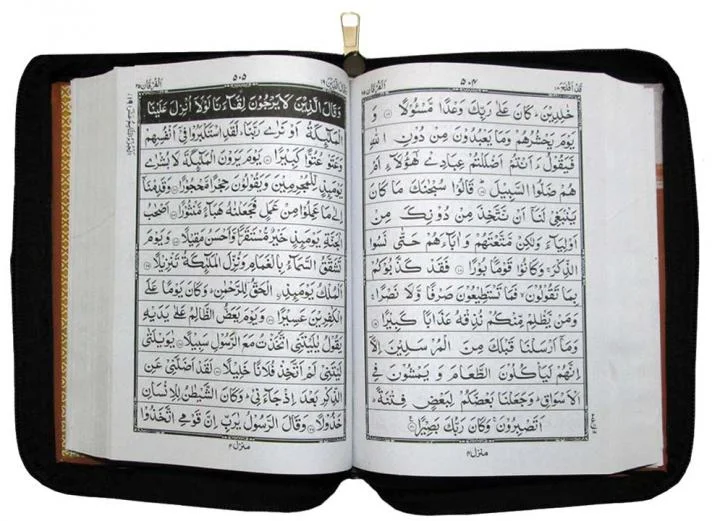 قَدْ اَفْلَحَ ١٨ ٥٠٤ اَلْفُرْقَان ٢٥
خٰلِدِيْنَ ؕ كَانَ عَلٰى رَبِّكَ وَعْدًا مَّسْـُٔوْلًا ۝ وَ
يَوْمَ يَحْشُرُهُمْ وَمَا يَعْبُدُوْنَ مِنْ دُوْنِ اللّٰهِ
فَيَقُوْلُ ءَاَنْتُمْ اَضْلَلْتُمْ عِبَادِيْ هٰٓؤُلَآءِ اَمْ
هُمْ ضَلُّوا السَّبِيْلَ ؕ قَالُوْا سُبْحٰنَكَ مَا كَانَ
يَنْۢبَغِيْ لَنَآ اَنْ نَّتَّخِذَ مِنْ دُوْنِكَ مِنْ
اَوْلِيَآءَ وَلٰكِنْ مَّتَّعْتَهُمْ وَ اٰبَآءَهُمْ حَتّٰى نَسُوا
الذِّكْرَ ۚ وَكَانُوْا قَوْمًۢا بُوْرًا ۝ فَقَدْ كَذَّبُوْكُمْ
بِمَا تَقُوْلُوْنَ ۙ فَمَا تَسْتَطِيْعُوْنَ صَرْفًا وَّلَا نَصْرًا ۚ
وَمَنْ يَّظْلِمْ مِّنْكُمْ نُذِقْهُ عَذَابًا كَبِيْرًا ۝
وَمَآ اَرْسَلْنَا قَبْلَكَ مِنَ الْمُرْسَلِيْنَ اِلَّآ
اِنَّهُمْ لَيَاْكُلُوْنَ الطَّعَامَ وَ يَمْشُوْنَ فِي
الْاَسْوَاقِ ؕ وَجَعَلْنَا بَعْضَكُمْ لِبَعْضٍ فِتْنَةً ؕ
اَتَصْبِرُوْنَ ۚ وَكَانَ رَبُّكَ بَصِيْرًا ۝
منزل ٤
وَقَالَ الَّذِيْنَ ١٩ ٥٠٥ اَلْفُرْقَان ٢٥
وَقَالَ الَّذِيْنَ لَا يَرْجُوْنَ لِقَآءَنَا لَوْلَآ اُنْزِلَ عَلَيْنَا
الْمَلٰٓئِكَةُ اَوْ نَرٰى رَبَّنَا ؕ لَقَدِ اسْتَكْبَرُوْا فِيْٓ اَنْفُسِهِمْ
وَعَتَوْ عُتُوًّا كَبِيْرًا ۝ يَوْمَ يَرَوْنَ الْمَلٰٓئِكَةَ لَا بُشْرٰى
يَوْمَئِذٍ لِّلْمُجْرِمِيْنَ وَيَقُوْلُوْنَ حِجْرًا مَّحْجُوْرًا ۝ وَقَدِمْنَآ
اِلٰى مَا عَمِلُوْا مِنْ عَمَلٍ فَجَعَلْنٰهُ هَبَآءً مَّنْثُوْرًا ۝ اَصْحٰبُ
الْجَنَّةِ يَوْمَئِذٍ خَيْرٌ مُّسْتَقَرًّا وَّاَحْسَنُ مَقِيْلًا ۝ وَيَوْمَ
تَشَقَّقُ السَّمَآءُ بِالْغَمَامِ وَنُزِّلَ الْمَلٰٓئِكَةُ تَنْزِيْلًا ۝
اَلْمُلْكُ يَوْمَئِذِ ِۨالْحَقُّ لِلرَّحْمٰنِ ؕ وَكَانَ يَوْمًا عَلَى
الْكٰفِرِيْنَ عَسِيْرًا ۝ وَيَوْمَ يَعَضُّ الظَّالِمُ عَلٰى يَدَيْهِ
يَقُوْلُ يٰلَيْتَنِي اتَّخَذْتُ مَعَ الرَّسُوْلِ سَبِيْلًا ۝ يٰوَيْلَتٰى
لَيْتَنِيْ لَمْ اَتَّخِذْ فُلَانًا خَلِيْلًا ۝ لَقَدْ اَضَلَّنِيْ عَنِ
الذِّكْرِ بَعْدَ اِذْ جَآءَنِيْ ؕ وَكَانَ الشَّيْطٰنُ لِلْاِنْسَانِ
خَذُوْلًا ۝ وَقَالَ الرَّسُوْلُ يٰرَبِّ اِنَّ قَوْمِي اتَّخَذُوْا
منزل ٤